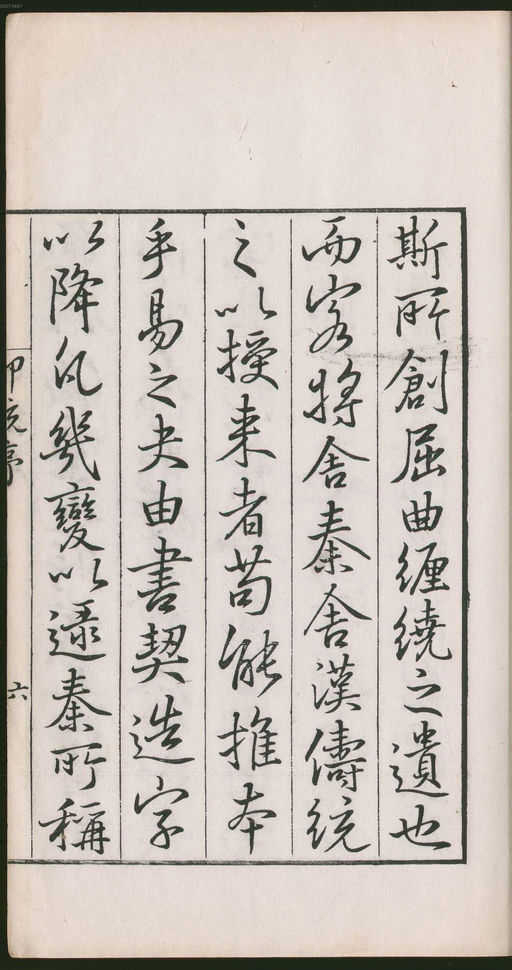 斯所創屈曲纏繞之遺也
而客將舍秦舍漢儔統
之以授来者苟能推本
乎易之夬由書契造字
以降凡幾變以逮秦所稱
印統序
六
00073497